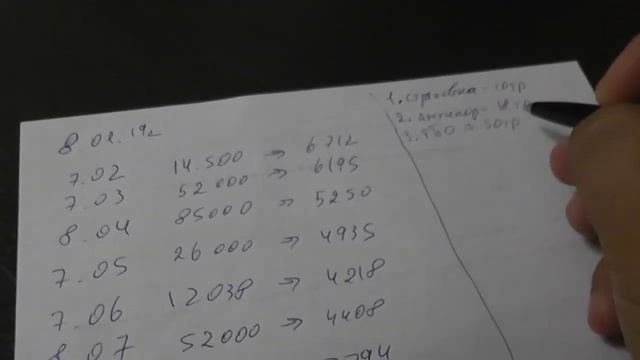 8.02.19г
7.02 14.500 => 6212
7.03 52000 => 6195
8.04 85000 => 5250
7.05 26000 => 4935
7.06 12038 => 4218
8.07 52000 => 4408
794
1. Страховка - 10тр
2.
3. ГБО ≈ 30тр